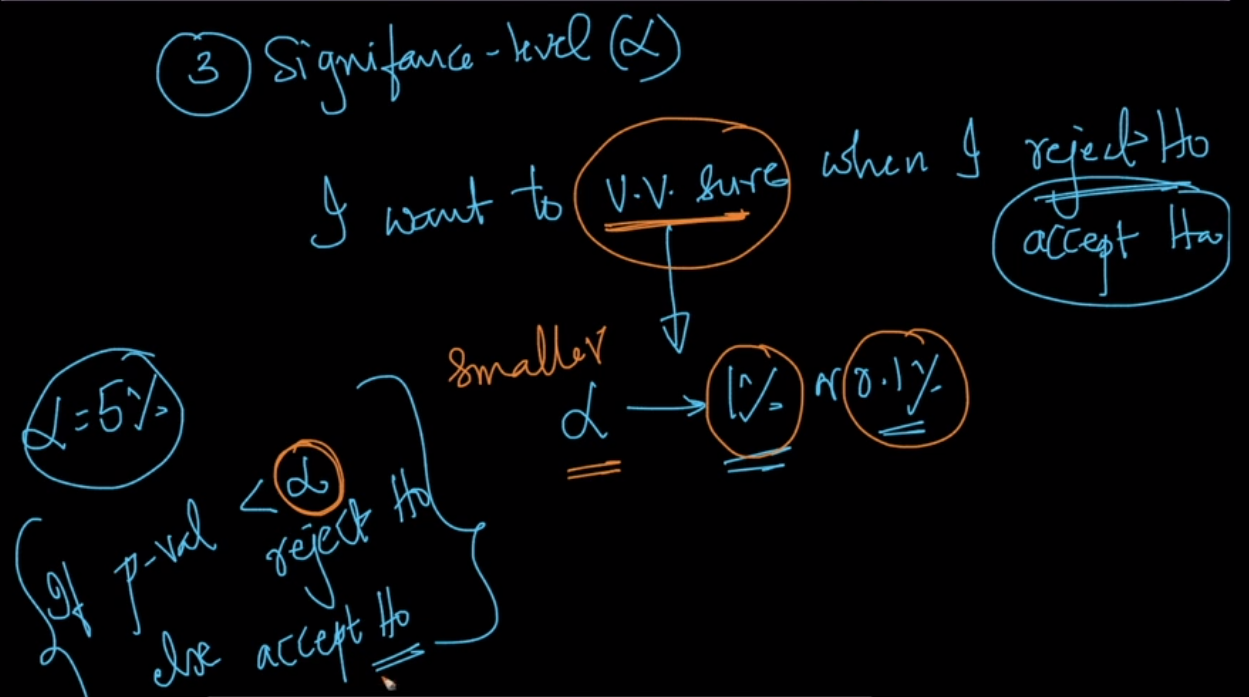 3 Signifance-level (α)
I want to V.V. sure when I reject Ho
accept Ha
smaller
α → 1% 0.1%
α=5%
If p-val < α
reject Ho
else accept Ho